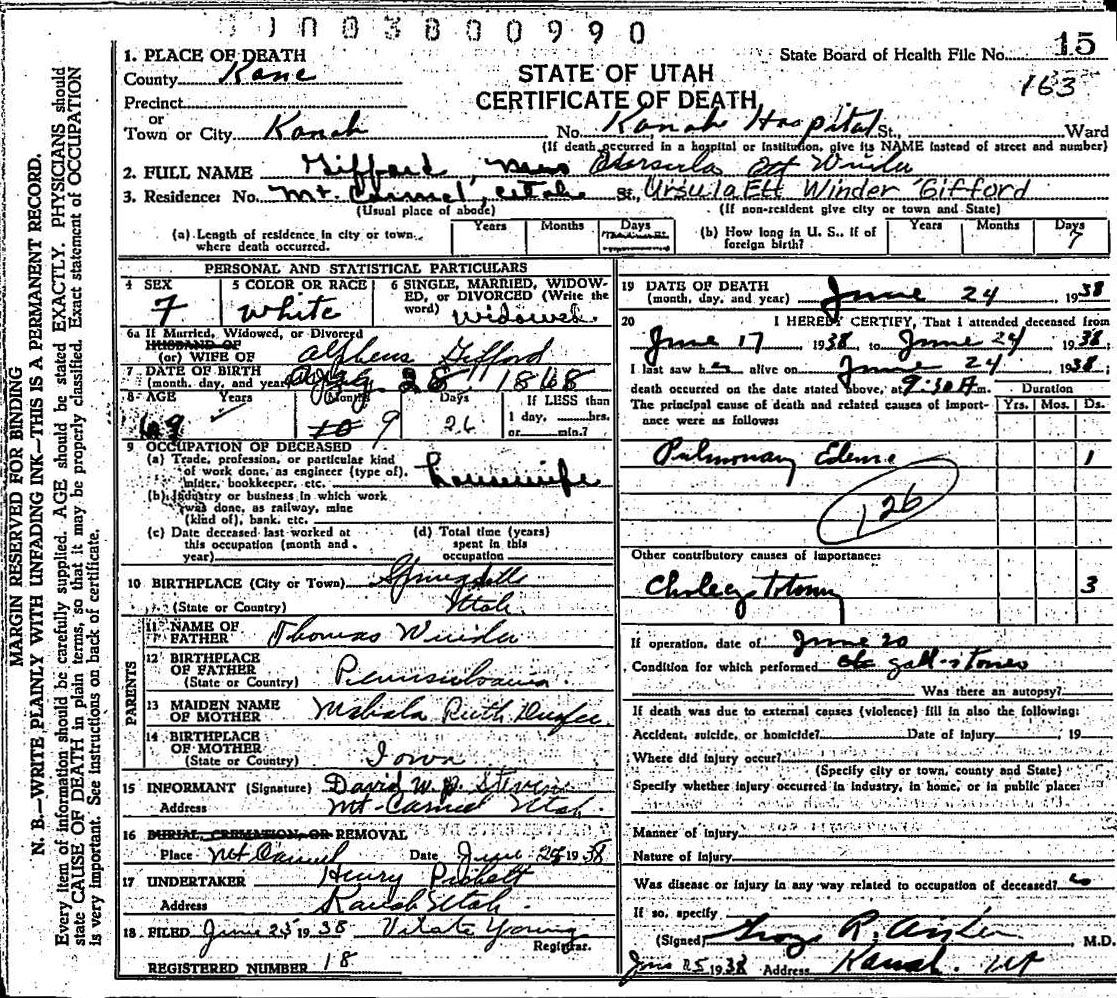 JU03800990
State Board of Health File No. 15
163
1. PLACE OF DEATH
County Kane
STATE OF UTAH
CERTIFICATE OF DEATH
Precinct
or
Town or City Kanab No. Kanab Hospital St., Ward
(If death occurred in a hospital or institution, give its NAME instead of street and number)
2. FULL NAME Gifford, Mrs Ursula Ett Winder
3. Residence: No. Mt. Carmel, Utah St., Ursula Ett Winder Gifford
(Usual place of abode) (If non-resident give city or town and State)
(a) Length of residence in city or town where death occurred. Years Months Days
(b) How long in U. S., if of foreign birth? Years Months Days 7
PERSONAL AND STATISTICAL PARTICULARS
4 SEX 5 COLOR OR RACE 6 SINGLE, MARRIED, WIDOWED, or DIVORCED (Write the word)
F White Widowed
6a If Married, Widowed, or Divorced
HUSBAND OF
(or) WIFE OF Alpheus Gifford
7 DATE OF BIRTH
(month, day, and year) Aug. 28 1868
8 AGE Years Months Days If LESS than
69 10 9 26 1 day, hrs.
or min.?
9 OCCUPATION OF DECEASED
(a) Trade, profession, or particular kind
of work done, as engineer (type of), Housewife
miner, bookkeeper, etc.
(b) Industry or business in which work
was done, as railway, mine
(kind of), bank, etc.
(c) Date deceased last worked at
this occupation (month and
year)
(d) Total time (years)
spent in this
occupation
10 BIRTHPLACE (City or Town) Springdale
(State or Country) Utah
PARENTS
11 NAME OF
FATHER Thomas Winder
12 BIRTHPLACE
OF FATHER
(State or Country) Pennsylvania
13 MAIDEN NAME
OF MOTHER Mahala Ruth
14 BIRTHPLACE
OF MOTHER
(State or Country) Iowa
15 INFORMANT (Signature) David W.
Address Mt Carmel Utah
16 BURIAL, CREMATION, OR REMOVAL
Place Mt Carmel Date June 1938
17 UNDERTAKER Henry
Address Kanab Utah.
18 FILED June 25 1938 Vilate Young
Registrar.
REGISTERED NUMBER 18
19 DATE OF DEATH
(month, day, and year) June 24, 1938
20 I HEREBY CERTIFY, That I attended deceased from
June 17 1938, to June 24 1938,
I last saw her alive on June 24 1938;
death occurred on the date stated above, at 9:30 A m. Duration
The principal cause of death and related causes of importance were as follows: Yrs. Mos. Ds.
Pulmonary Edema 1
126
Other contributory causes of importance:
Cholecystotomy 3
If operation, date of June 20
Condition for which performed gall-stones
Was there an autopsy?
If death was due to external causes (violence) fill in also the following:
Accident, suicide, or homicide? Date of injury , 19
Where did injury occur?
(Specify city or town, county and State)
Specify whether injury occurred in industry, in home, or in public place:
Manner of injury
Nature of injury
Was disease or injury in any way related to occupation of deceased?
If so, specify
(Signed) R. , M.D.
June 25 1938 Address Kanab. Ut
MARGIN RESERVED FOR BINDING
N. B.—WRITE PLAINLY WITH UNFADING INK—THIS IS A PERMANENT RECORD.
Every item of information should be carefully supplied. AGE should be stated EXACTLY. PHYSICIANS should
state CAUSE OF DEATH in plain terms, so that it may be properly classified. Exact statement of OCCUPATION
is very important. See instructions on back of certificate.